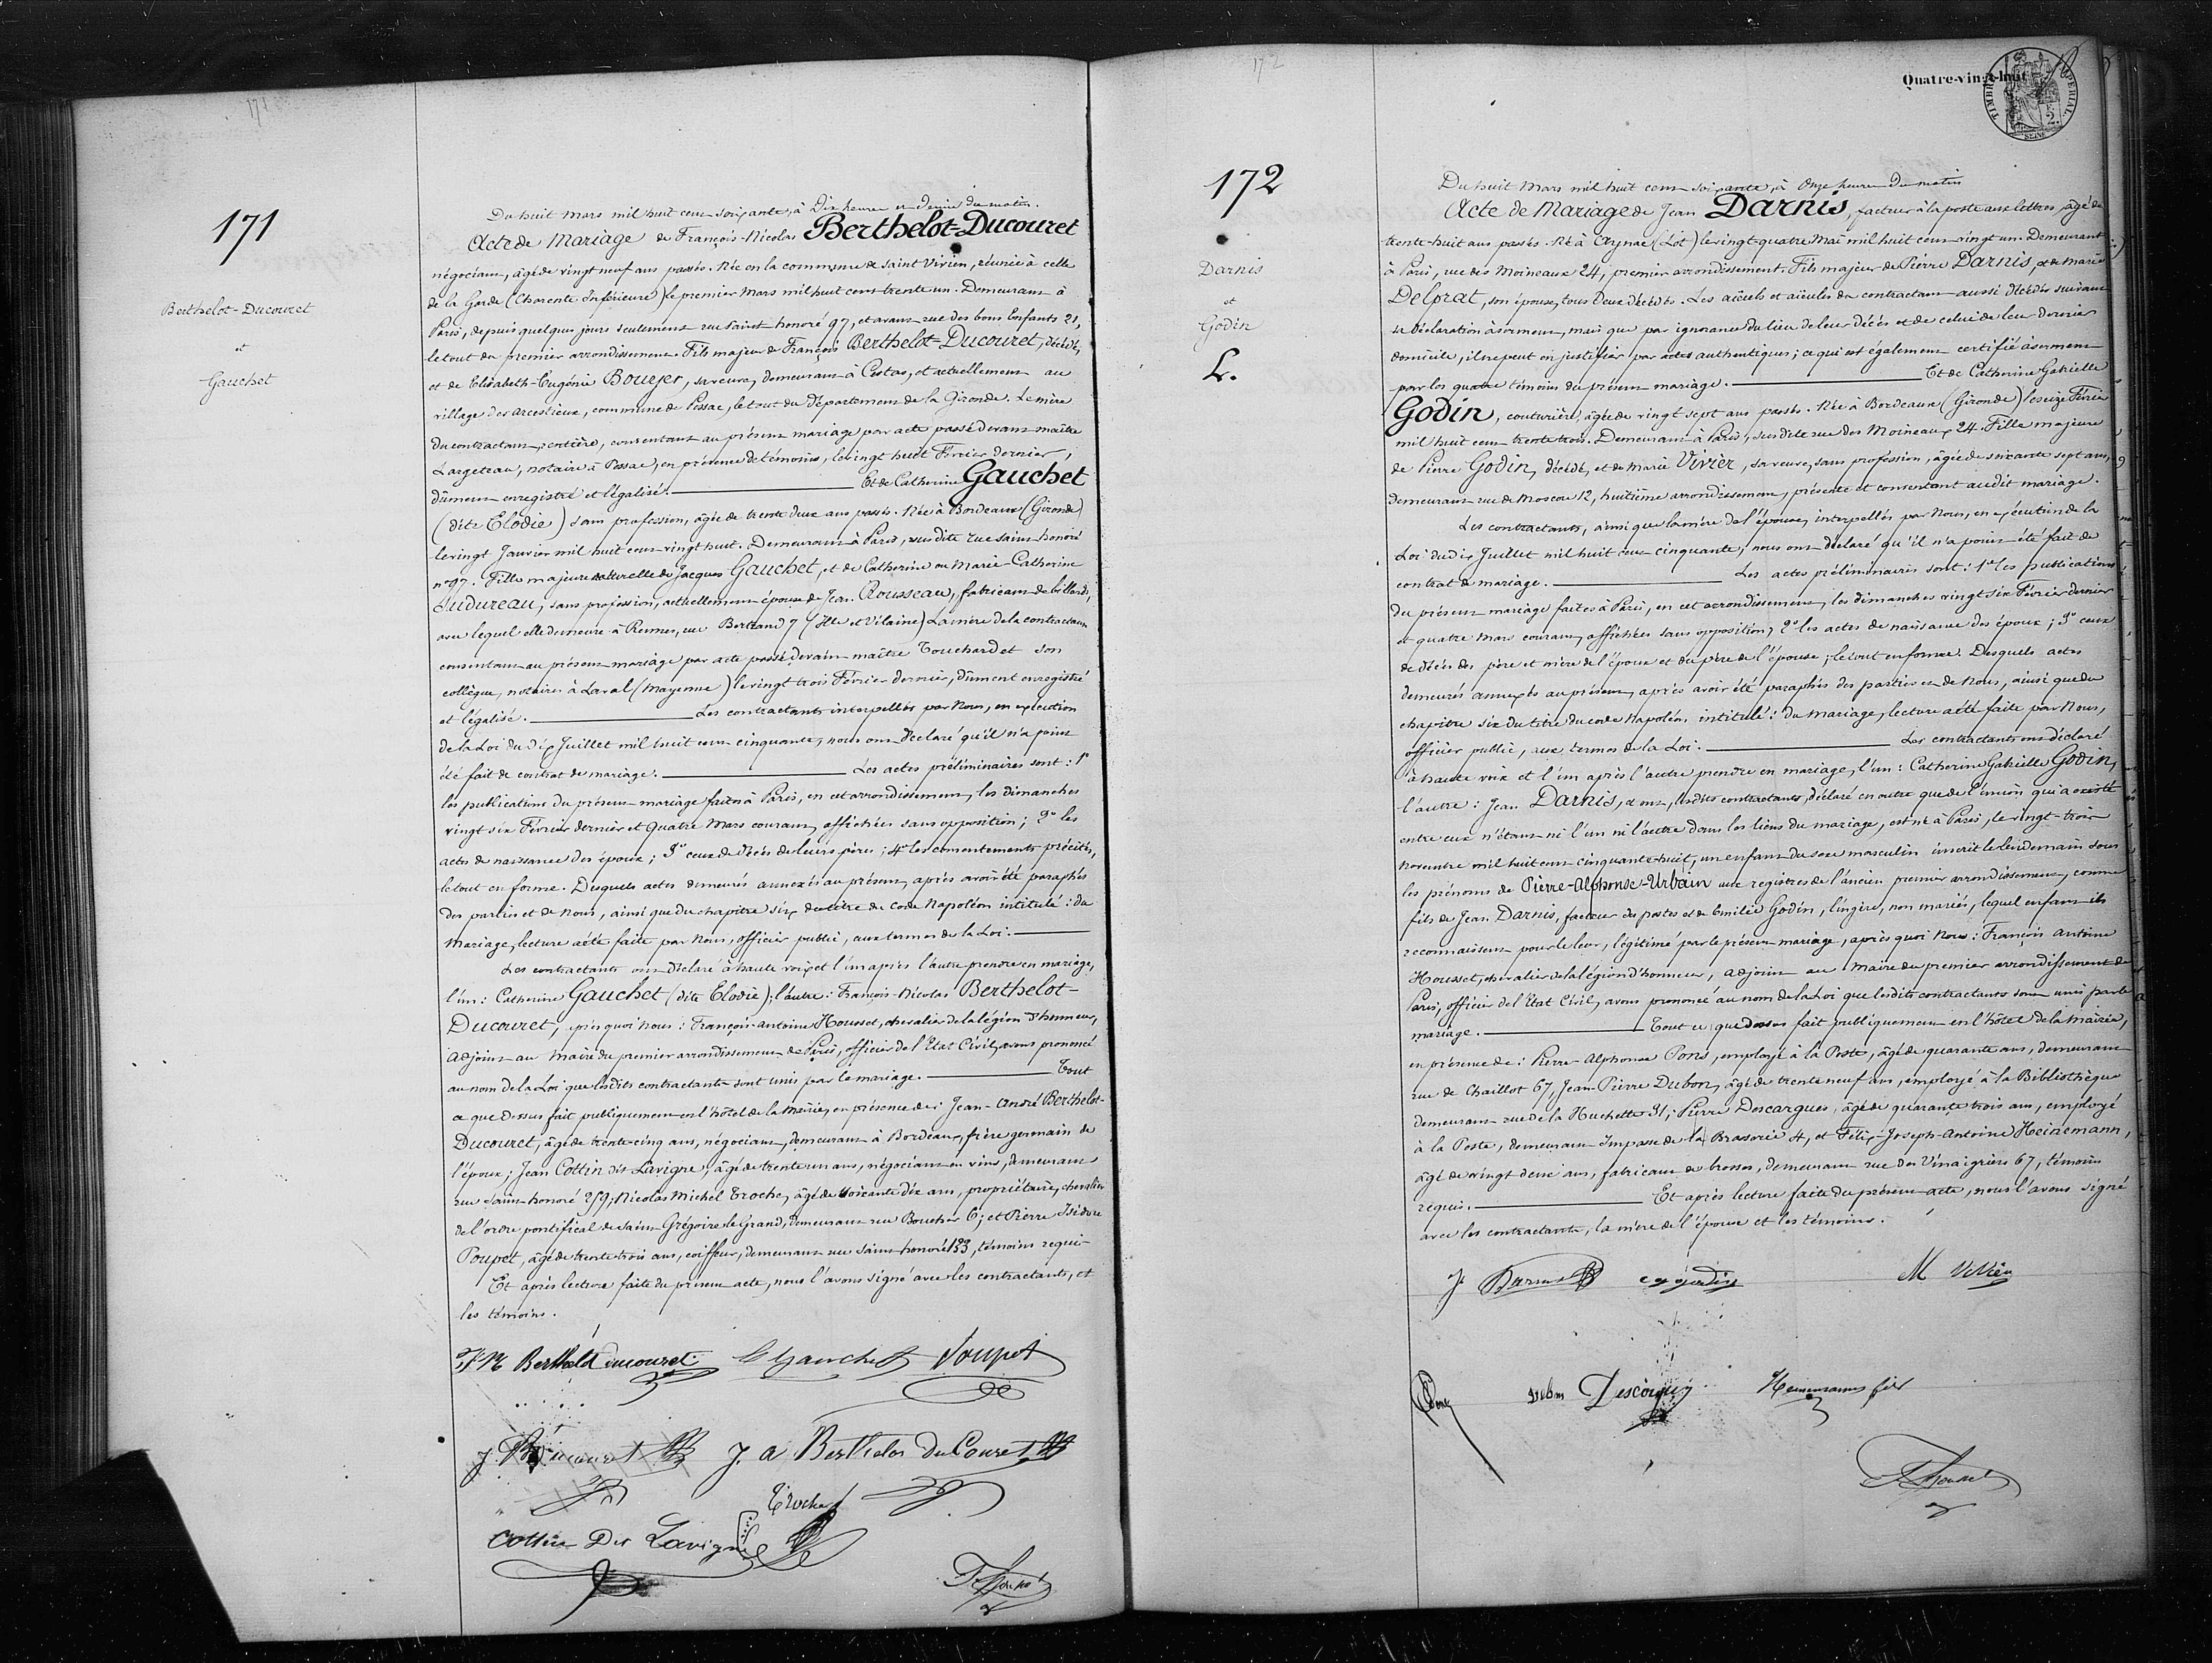 171
171
Berthelot-Ducouret
et
Gauchet
Du huit Mars mil huit cent soixante, à Dix heures et demie du matin.
Acte de Mariage de François-Nicolas Berthelot-Ducouret
négociant, âgé de vingt neuf ans passés. Née en la commune de Saint Vivien, réunie à celle
de la Garde (Charente Inférieure) le premier Mars mil huit cent trente un. Demeurant à
Paris, depuis quelques jours seulement rue Saint honoré 97, et avant rue des bons Enfants 21,
le tout du premier arrondissement. Fils majeur de François Berthelot-Ducouret, décédé,
et de Elisabeth-Eugénie Bouyer, sa veuve, demeurant à Cestas, et actuellement au
village des arcestieux, commune de Pessac, le tout du Département de la Gironde. La mère
du contractant, rentière, consentant au présent mariage par acte passé devant maître
Largeteau, notaire à Pessac, en présence de témoins, le vingt huit Février dernier,
dûment enregistré et légalisé. Et de Catherine Gauchet
(dite Elodie) sans profession, âgée de trente deux ans passés. Née à Bordeaux (Gironde)
le vingt Janvier mil huit cent vingt huit. Demeurant à Paris, susdite rue Saint honoré
n° 97. Fille majeure naturelle de Jacques Gauchet, et de Catherine ou Marie-Catherine
Sudureau, sans profession, actuellement épouse de Jean Rousseau, fabricant de billards,
avec lequel elle demeure à Rennes, rue Bertrand 7 (Ille et Vilaine) La mère de la contractante
consentant au présent mariage par acte passé devant maître Touchard et son
collègue, notaires à Laval (Mayenne) le vingt trois Février dernier, dûment enregistré
et légalisé. Les contractants interpellés par Nous, en exécution
de la Loi du dix Juillet mil huit cent cinquante, nous ont déclaré qu'il n'a point
été fait de contrat de mariage. Les actes préliminaires sont : 1°
les publications du présent mariage faites à Paris, en cet arrondissement, les dimanches
vingt six Février dernier et quatre Mars courant, affichées sans opposition ; 2° les
actes de naissance des époux ; 3° ceux de décès de leurs pères ; 4° les consentements précités,
le tout en forme. Desquels actes demeurés annexés au présent, après avoir été paraphés
des parties et de Nous, ainsi que du chapitre six du titre du code Napoléon intitulé : du
Mariage, lecture a été faite par Nous, officier public, aux termes de la Loi.
Les contractants ont déclaré à haute voix et l'un après l'autre prendre en mariage,
l'un : Catherine Gauchet (dite Elodie) ; l'autre : François-Nicolas Berthelot-
Ducouret, après quoi Nous : François-Antoine Housset, chevalier de la légion d'honneur,
adjoint au Maire du premier arrondissement de Paris, officier de l'Etat Civil, avons prononcé
au nom de la Loi que lesdits contractants sont unis par le mariage. Tout
ce que dessus fait publiquement en l'hôtel de la Mairie, en présence de : Jean-André Berthelot-
Ducouret, âgé de trente-cinq ans, négociant, demeurant à Bordeaux, frère germain de
l'époux ; Jean Cottin dit Lavigne, âgé de trente un ans, négociant en vins, demeurant
rue Saint-honoré 259 ; Nicolas Michel Troche, âgé de soixante dix ans, propriétaire, chevalier
de l'ordre pontifical de Saint Grégoire le Grand, demeurant rue Boucher 6 ; et Pierre Isidore
Poupet, âgé de trente trois ans, coiffeur, demeurant rue Saint honoré 133, témoins requis
Et après lecture faite du présent acte, nous l'avons signé avec les contractants, et
les témoins.
F N Berthelot ducouret C Gauchet Poupet
J. A Berthelot DuCouret
Troche
Cottin Dit Lavigne
172
172
Darnis
et
Godin
L.
Quatre-vingt-huit
TIMBRE IMPERIAL
2.
SEINE
Du huit Mars mil huit cent soixante, à Onze heures du matin
Acte de Mariage de Jean Darnis, facteur à la poste aux lettres, âgé de
trente-huit ans passés. Né à Aynac (Lot) le vingt-quatre Mai mil huit cent vingt un. Demeurant
à Paris, rue des Moineaux 24, premier arrondissement. Fils majeur de Pierre Darnis, et de Marie
Delprat, son épouse, tous deux décédés. Les aïeuls et aïeules du contractant aussi décédés suivant
sa déclaration à serment, mais que par ignorance du lieu de leur décès et de celui de leur dernier
domicile, il ne peut en justifier par actes authentiques ; ce qui est également certifié à serment
par les quatre témoins du présent mariage. Et de Catherine Gabrielle
Godin, couturière, âgée de vingt sept ans passés. Née à Bordeaux (Gironde) le seize Février
mil huit cent trente trois. Demeurant à Paris, susdite rue des Moineaux 24. Fille majeure
de Pierre Godin, décédé, et de Marie Vivier, sa veuve, sans profession, âgée de soixante sept ans,
demeurant rue de Moscou 12, huitième arrondissement, présente et consentant audit mariage.
Les contractants, ainsi que la mère de l'épouse, interpellés par Nous, en exécution de la
Loi du dix Juillet mil huit cent cinquante, nous ont déclaré qu'il n'a point été fait de
contrat de mariage. Les actes préliminaires sont : 1° les publications
du présent mariage faites à Paris, en cet arrondissement, les dimanches vingt six Février dernier
et quatre Mars courant, affichées sans opposition ; 2° les actes de naissance des époux ; 3° ceux
de décès des père et mère de l'époux et du père de l'épouse ; le tout en forme. Desquels actes
demeurés annexés au présent, après avoir été paraphés des parties et de Nous, ainsi que du
chapitre six du titre du code Napoléon intitulé : du Mariage, lecture a été faite par Nous,
officier public, aux termes de la Loi. Les contractants ont déclaré
à haute voix et l'un après l'autre prendre en mariage, l'un : Catherine Gabrielle Godin,
l'autre : Jean Darnis, et ont, lesdits contractants, déclaré en outre que de l'union qui a existé
entre eux n'étant ni l'un ni l'autre dans les liens du mariage, est né à Paris, le vingt-trois
novembre mil huit cent cinquante-huit, un enfant du sexe masculin inscrit le lendemain sous
les prénoms de Pierre-Alphonse-Urbain aux registres de l'ancien premier arrondissement, comme
fils de Jean Darnis, facteur des postes et de Emilie Godin, lingère, non mariés, lequel enfant ils
reconnaissent pour le leur, légitimé par le présent mariage, après quoi Nous : François Antoine
Housset, chevalier de la légion d'honneur, adjoint au Maire du premier arrondissement de
Paris, officier de l'Etat Civil, avons prononcé au nom de la Loi que lesdits contractants sont unis par le
mariage. Tout ce que dessus fait publiquement en l'hôtel de la Mairie,
en présence de : Pierre-Alphonse Pons, employé à la Poste, âgé de quarante ans, demeurant
rue de Chaillot 67, Jean-Pierre Dubon, âgé de trente neuf ans, employé à la Bibliothèque
demeurant rue de la Huchette 31 ; Pierre Descargues, âgé de quarante trois ans, employé
à la Poste, demeurant Impasse de la Brasserie 4, et Félix-Joseph-Antoine Heinemann,
âgé de vingt deux ans, fabricant de brosses, demeurant rue des Vinaigriers 67, témoins
requis. Et après lecture faite du présent acte, nous l'avons signé
avec les contractants, la mère de l'épouse et les témoins.
J Darnis C G Godin M ViVien
Pons Dubon Descargues Heinemann fils